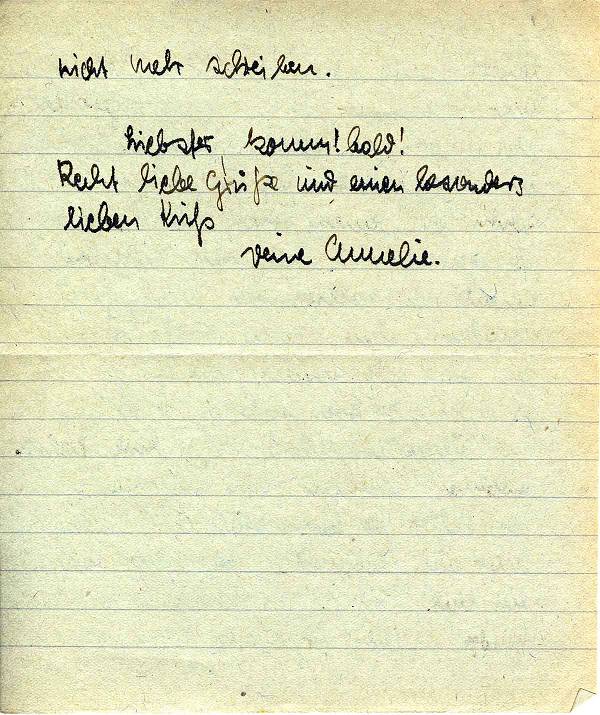 nicht mehr schreiben.
Liebster, komm! bald!
Recht liebe Grüße und einen besonders
lieben Kuß
Deine Annelie.